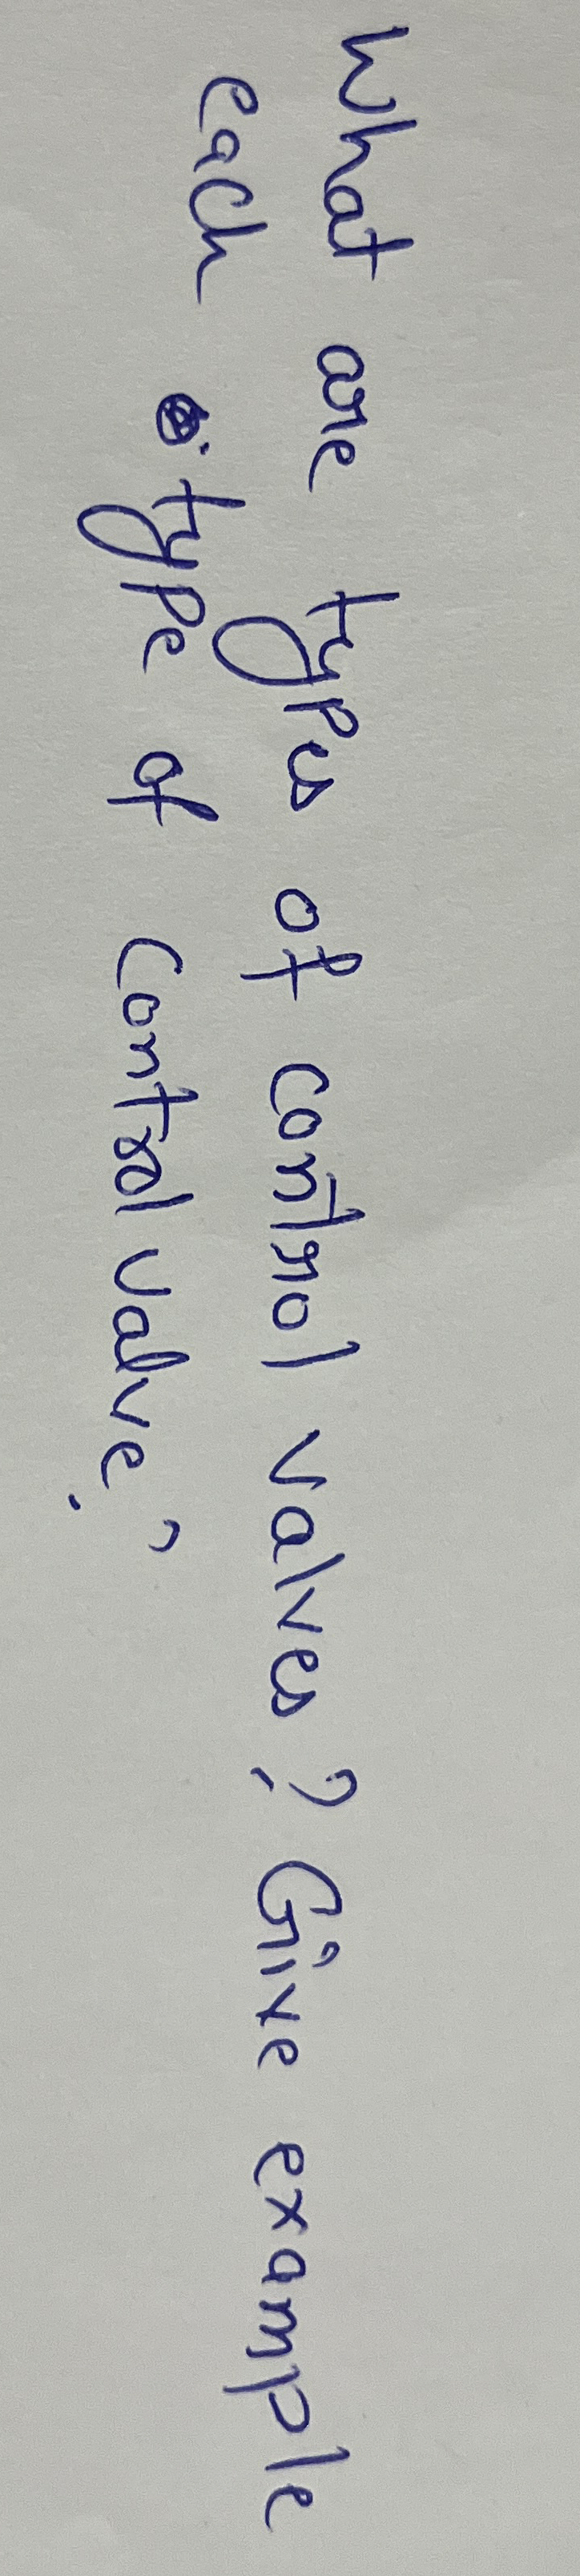 What are types of control valves? Give example
each type of control valve?